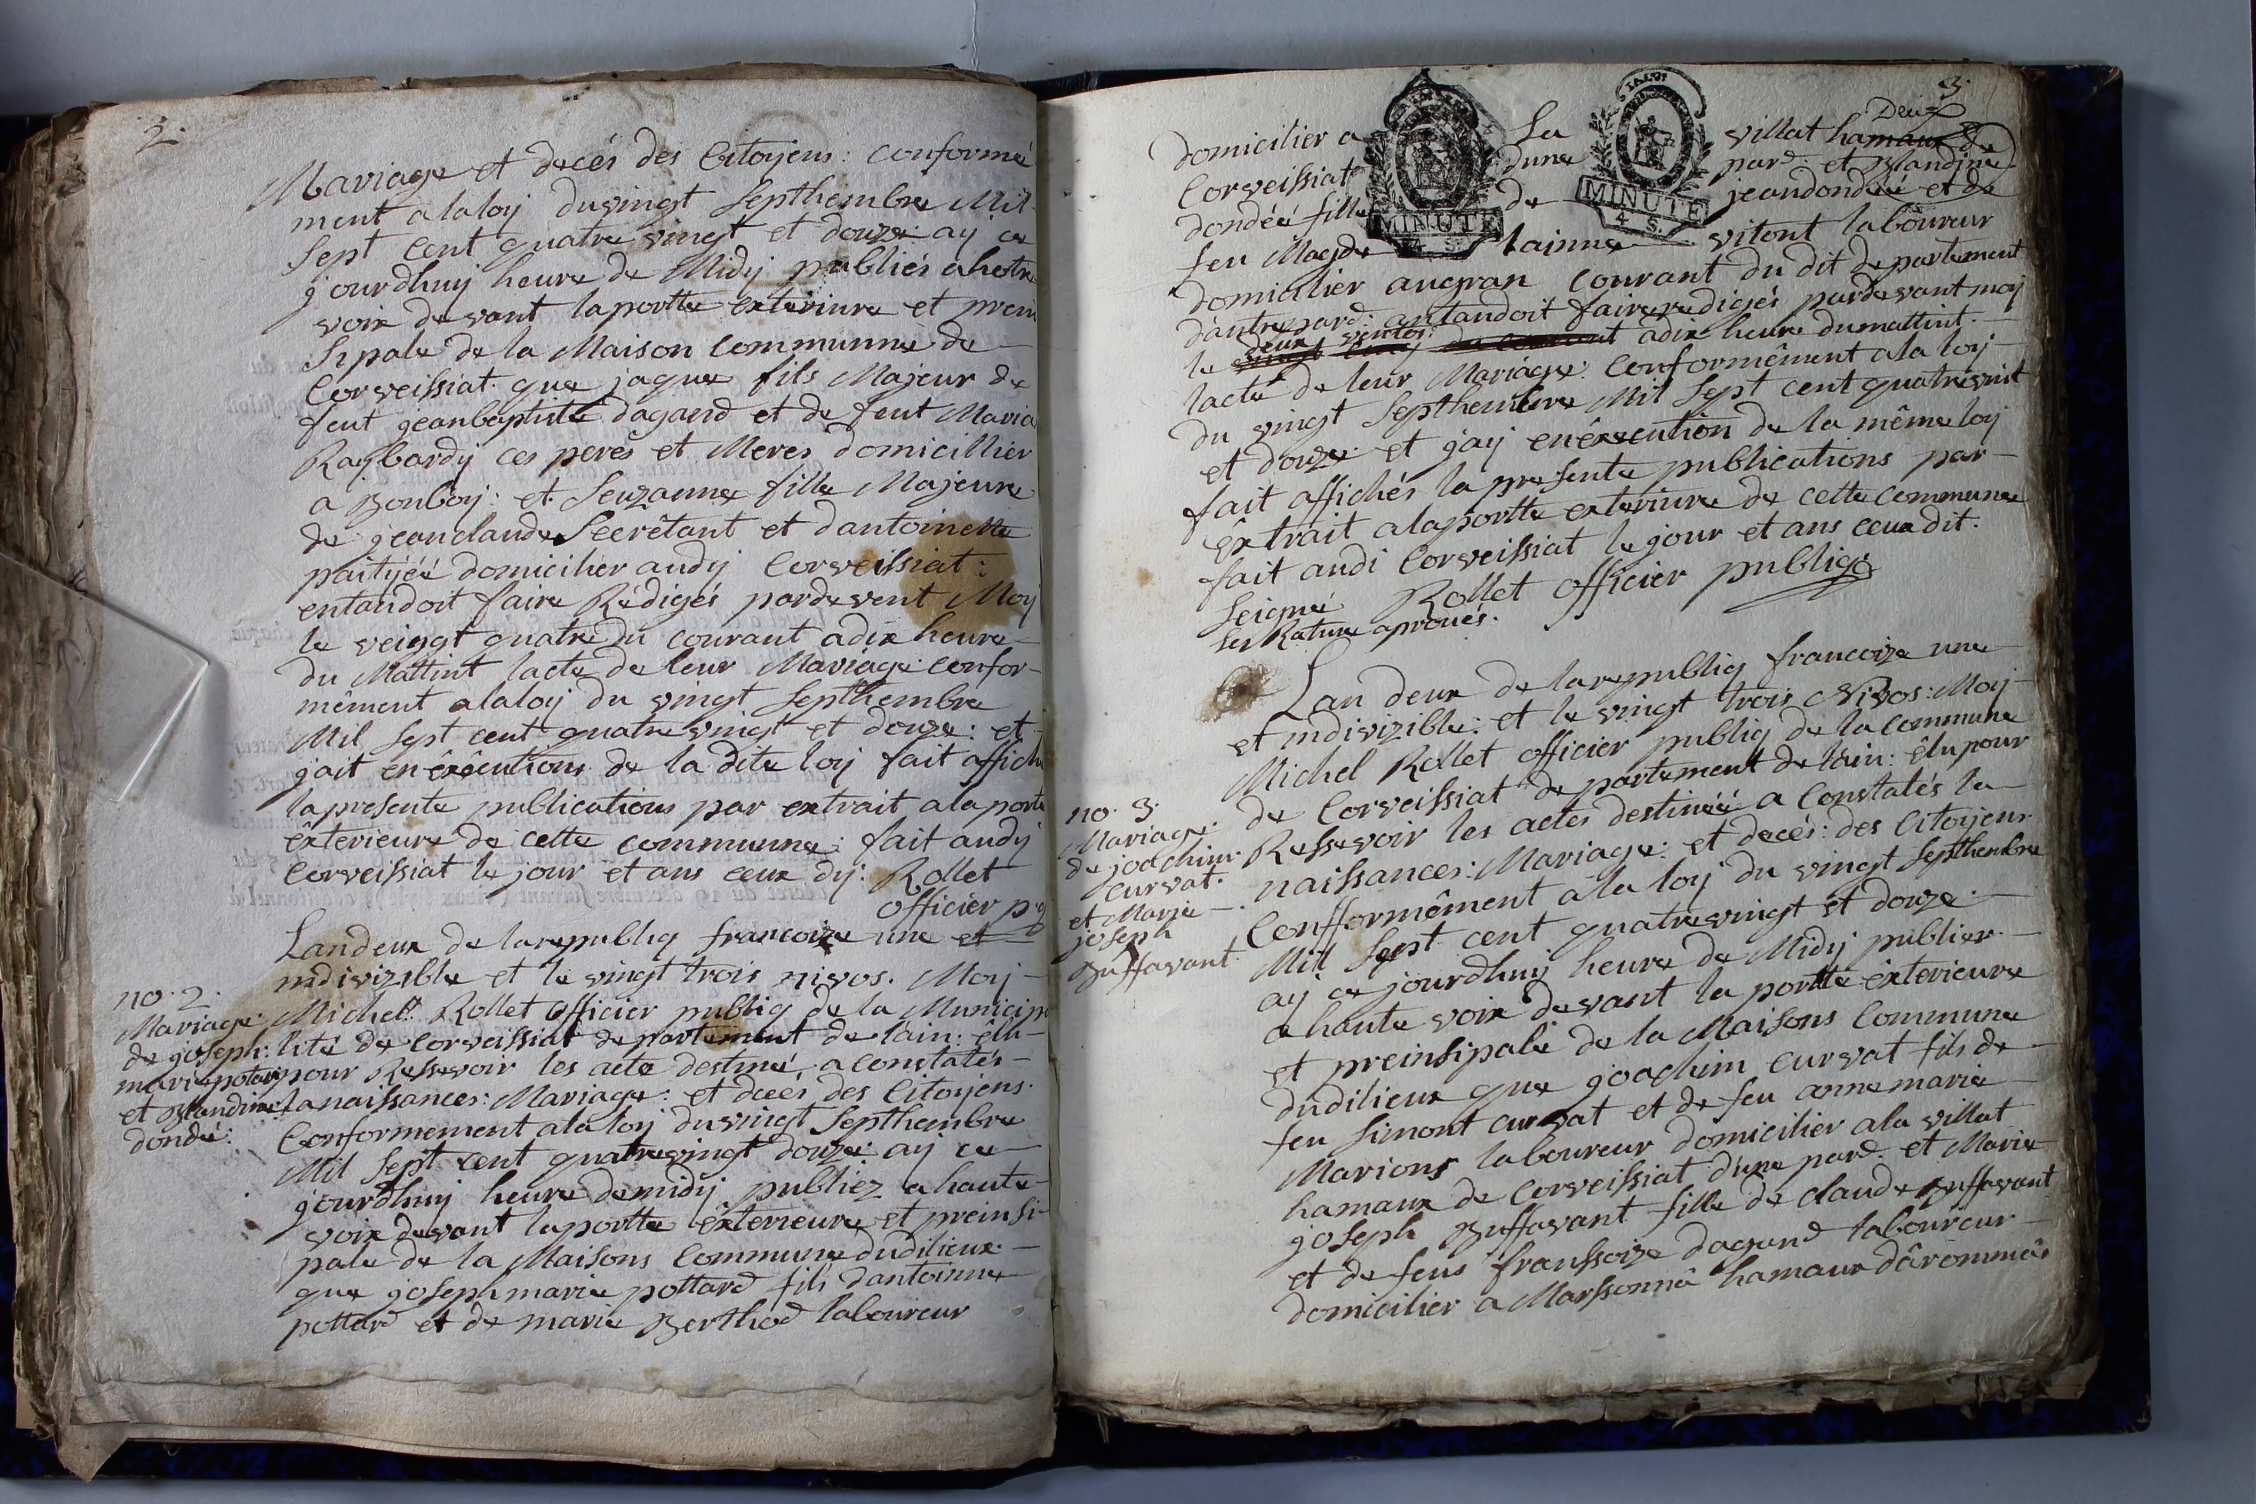 2.
Mariage et decés des Citoyens: conformé
ment alaloy duvingt Septhembre Mil
Sept Cent quatre vingt et douze: ay ce
jourdhuy heure de Midy publiés ahotre
voix devant laportte exterieure et prein
sipale de la Maison communne de
Corveissiat. que jaque fils Majeur de
feut jeanbaptiste dagand et de feut Maria
Raybardy ces perés et Meres domicillier
a Bonboy: et Seuzanne fille Majeure
de jeanclaude Secrêtant et dantoinette
paityéé domicilier audy Corveissiat:
entandoit faire Rédigés pardevent Moy
le veingt quatre du courant adix heure
du Mattint lacte de leur Mariage: confor-
mêment alaloy du vingt Septhembre
Mil Sept cent quatre vingt et douze: et
jait enexêcutions de la dite loy fait affich
lapresente publications par extrait ala porte
êxterieure de cette communne: fait audy
Corveissiat le jour et ans ceux dy: Rollet
officier p.q
Landeux de larepubliq francoize une et
indivizible et le vingt trois nivos. Moy
no. 2.
Mariage:
de joseph:
marie potard
et Blandine:
dondé:
Michel Rollet officier publiq de la Municipa
lité de Corveissiat departement de lain: êlu
pour Ressevoir les acte destiné, a constatés
la naissances: Mariage: et decés des Citoyens.
Conformement alaloy duvingt Septhembre
Mil Sept cent quatrevingt douze: ay ce
jourdhuy heure demidy publiez ahaute
voix devant laportte êxterieure, et preinsi-
pale de la Maisons Commune dudilieux
que joseph marie pottard fils dantoinne
pottard et de marie Berthod laboureur
3.
domicilier a La villat hamaux de
Deux
Corveissiat dune pard: et Blandine
dondéé fille de jeandondéé et de
feu Magdelainne vitont laboureur
MINUTE
4. S.
MINUTE
4. S.
domicilier augran Courant du dit departement
dautre pard: antandoit faire redigés pardevant moy
le deux ventos: adix heure dumattint.
lacte de leur Mariage: Conformêment ala loy
du vingt Septhembre Mil Sept cent quatrevint
et douze: et jay enêxecution de la même loy
fait affichés la presente publications par
êxtrait alaportte exterieure de cette commune
fait audi Corveissiat le jour et ans ceux dit.
Seigné Rollet officier publiq
les Rature aproués.
Lan deux de larepubliq francoize une
et indivizible: et le vingt trois Nivos: Moy
Michel Rollet officier publiq de la commune
de Corveissiat departement de lain: êlu pour
no. 3.
Mariage:
de joachim:
curvat.
et Marie
joseph
Buffavant.
Ressevoir les actes destinéé a Constatés la
naissances: Mariage: et decés: des Citoyens
Confformêment a la loy du vingt septhembre
Mil Sept cent quatrevingt et douze.
ay ce jourdhuy heure de Midy publier
a haute voix devant la portte êxterieure
et preinsipale de la Maisons Commune
dudilieux que joachim curvat fils de
feu Simont curvat et de feu anne marie
Marions laboureur domicilier ala villat
hamaux de Corveissiat dune pard: et Marie
joseph Buffavant fille de claude Buffavant
et de feus franssoize dagand laboureur
domicilier a Marssonna hamaux dârommâs